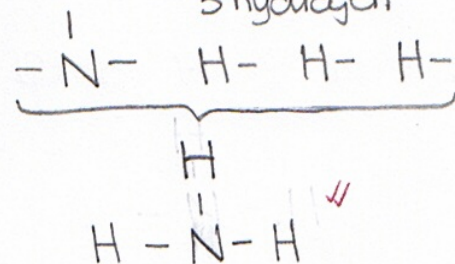 3 hydrogen
|
– N – H – H – H –
H
|
H – N – H